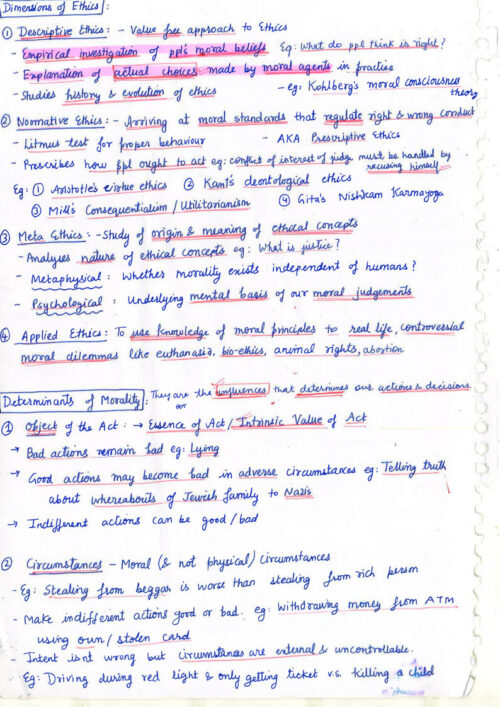 Dimensions of Ethics:
① Descriptive Ethics: - Value free approach to Ethics
- Empirical investigation of ppl's moral beliefs Eg: What do ppl think is right?
- Explanation of actual choices made by moral agents in practice
- Studies history & evolution of ethics - eg: Kohlberg's moral consciousness theory
② Normative Ethics: - Arriving at moral standards that regulate right & wrong conduct
- Litmus test for proper behaviour - AKA Prescriptive Ethics
- Prescribes how ppl ought to act eg: conflict of interest of judge must be handled by recusing himself
Eg: ① Aristotle's virtue ethics ② Kant's deontological ethics
③ Mill's Consequentialism / Utilitarianism ④ Gita's Nishkam Karmayoga
③ Meta Ethics: - Study of origin & meaning of ethical concepts
- Analyses nature of ethical concepts eg: What is justice?
- Metaphysical: Whether morality exists independent of humans?
- Psychological: Underlying mental basis of our moral judgements
④ Applied Ethics: To use knowledge of moral principles to real life, controversial
moral dilemmas like euthanasia, bio-ethics, animal rights, abortion
Determinants of Morality: They are the influences that determines our actions & decisions.
① Object of the Act: → Essence of Act / Intrinsic Value of Act
→ Bad actions remain bad eg: Lying
→ Good actions may become bad in adverse circumstances eg: Telling truth
about whereabouts of Jewish family to Nazis
→ Indifferent actions can be good / bad
② Circumstances - Moral (& not physical) Circumstances
- Eg: Stealing from beggar is worse than stealing from rich person
- Make indifferent actions good or bad. eg: Withdrawing money from ATM
using own / stolen card
- Intent isnt wrong but circumstances are external & uncontrollable.
Eg: Driving during red light & only getting ticket v.s. killing a child